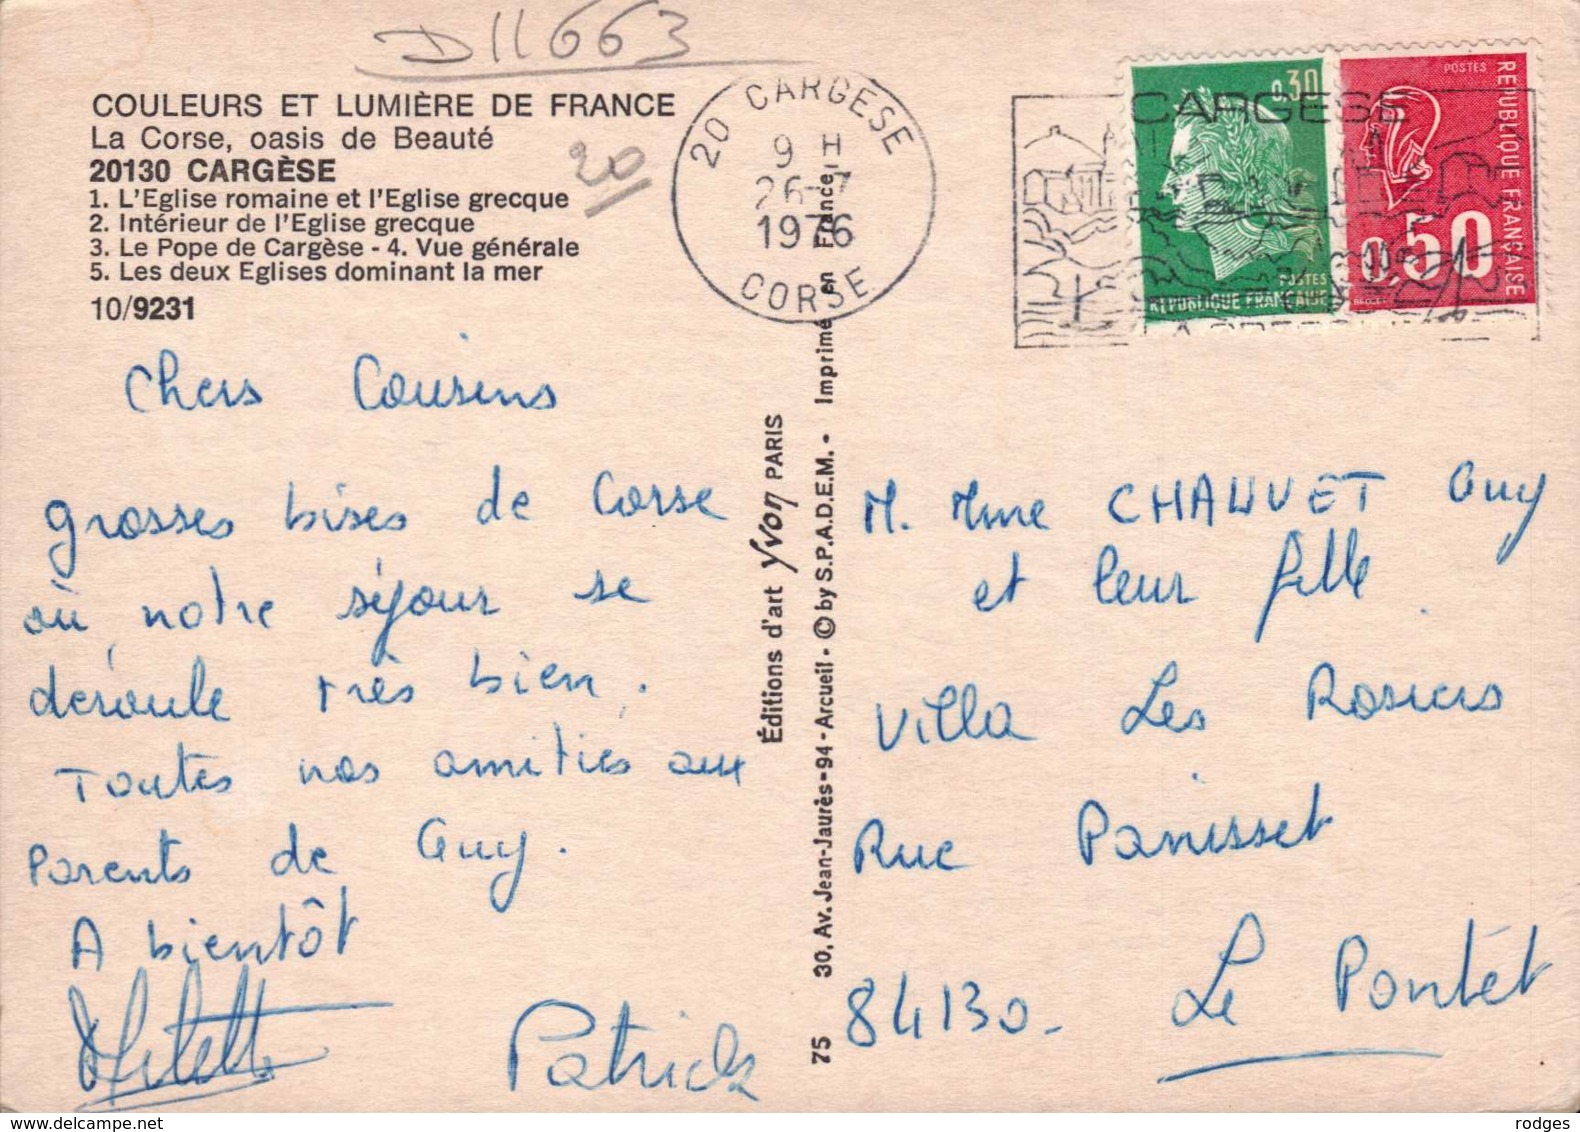 D11663
COULEURS ET LUMIÈRE DE FRANCE
La Corse, oasis de Beauté
20130 CARGÈSE
1. L'Eglise romaine et l'Eglise grecque
2. Intérieur de l'Eglise grecque
3. Le Pope de Cargèse - 4. Vue générale
5. Les deux Eglises dominant la mer
10/9231
20
20 CARGESE
9 H
26-7
1976
CORSE
CARGESE
0,30
POSTES
REPUBLIQUE FRANÇAISE
POSTES
REPUBLIQUE FRANÇAISE
0,50
Chers Cousins
grosses bises de Corse
où notre séjour se
déroule très bien.
Toutes nos amitiés aux
Parents de Guy.
A bientôt
Patrick
Éditions d'art Yvon PARIS
75 30, Av. Jean-Jaurès-94-Arcueil - © by S.P.A.D.E.M. - Imprimé en France
M. Mme CHAUVET Guy
et leur fille
Villa Les Rosiers
Rue Panisset
84130. Le Pontet
rodges